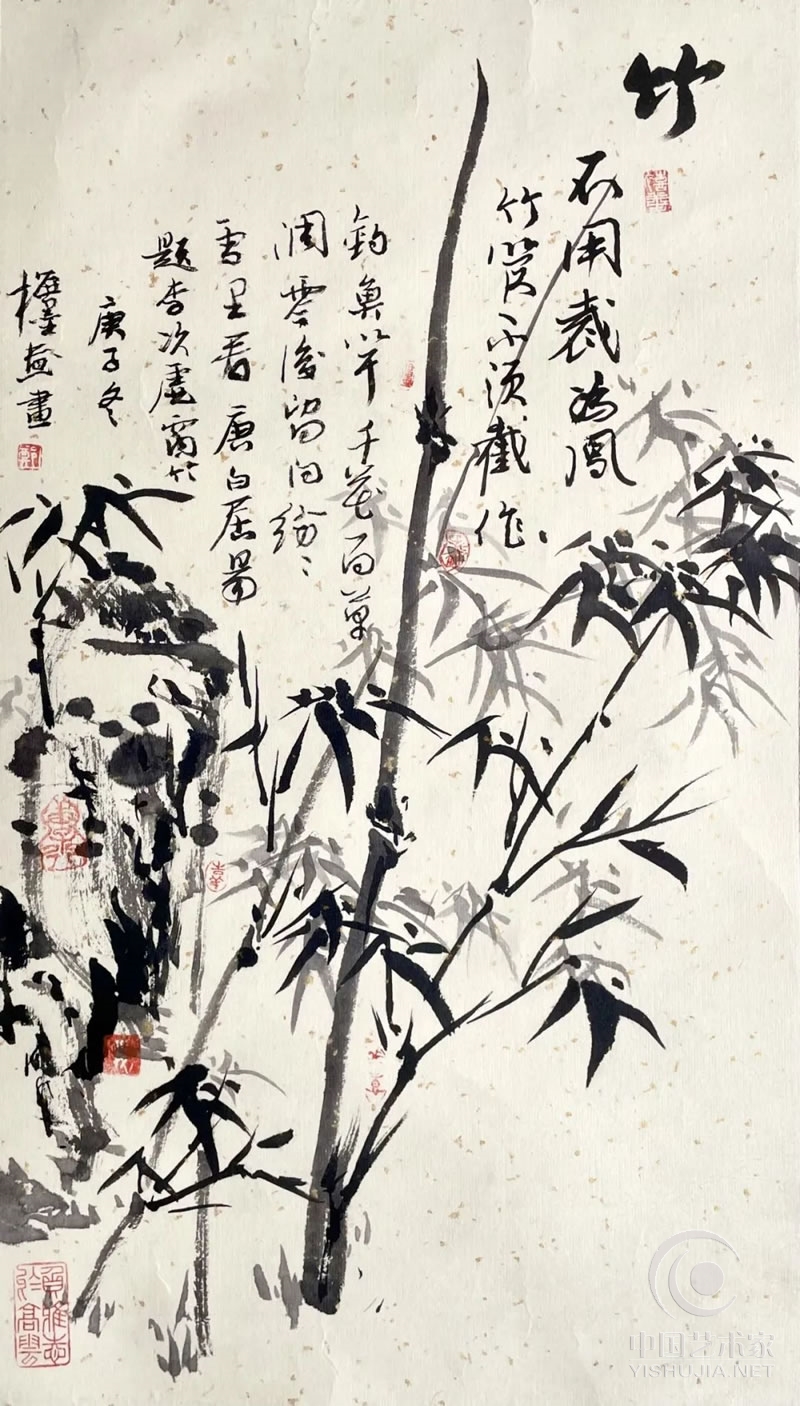 竹
不用裁為鳳
竹管不須截作
釣魚竿千花百草
凋零後留向紛〻
雪里看唐白居易
題李次窗竹
庚子冬
畫
中国艺术家
YISHUJIA.NET